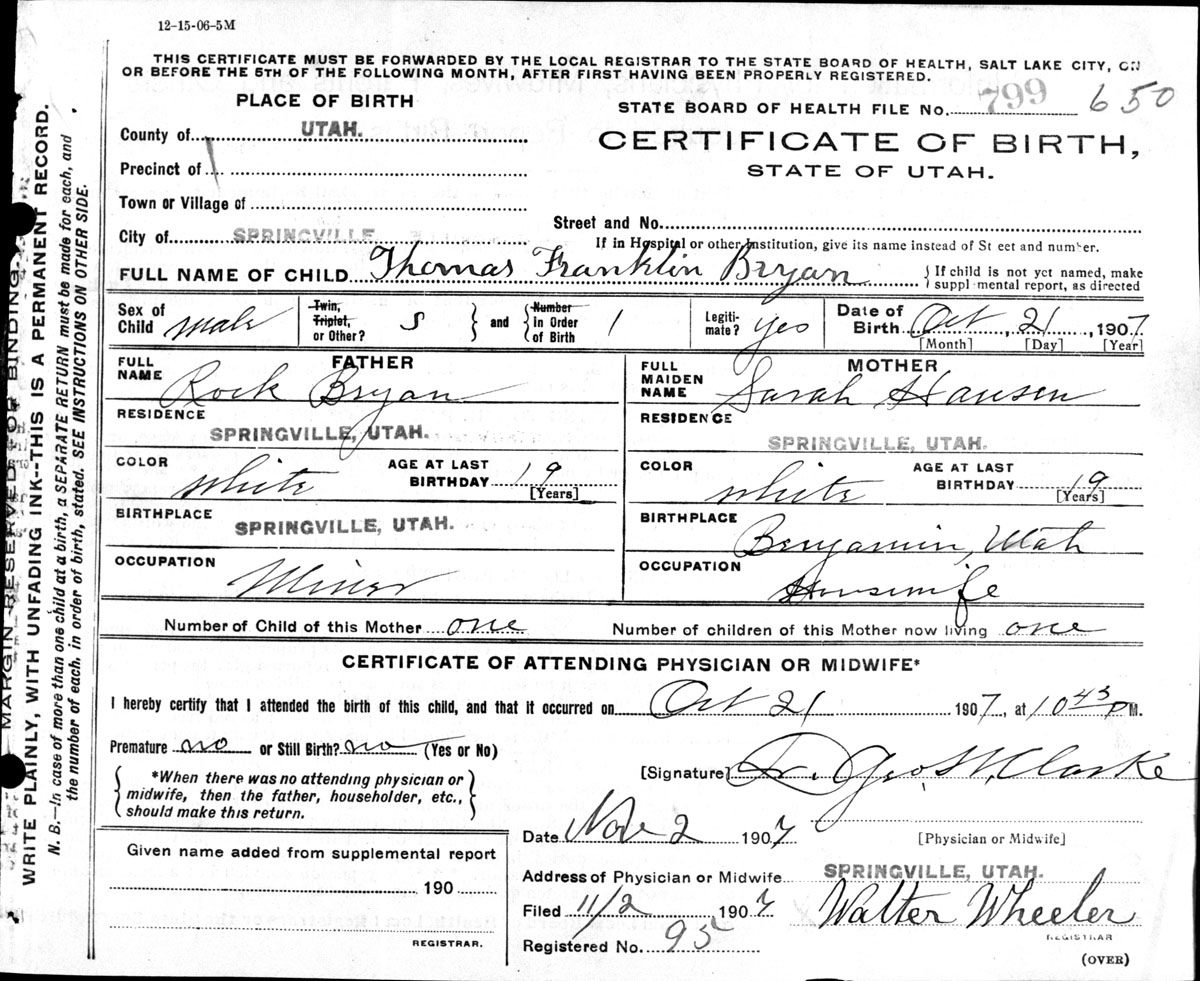 12-15-06-5M
THIS CERTIFICATE MUST BE FORWARDED BY THE LOCAL REGISTRAR TO THE STATE BOARD OF HEALTH, SALT LAKE CITY, ON
OR BEFORE THE 5TH OF THE FOLLOWING MONTH, AFTER FIRST HAVING BEEN PROPERLY REGISTERED.
PLACE OF BIRTH
STATE BOARD OF HEALTH FILE No. 799 650
County of UTAH.
CERTIFICATE OF BIRTH,
STATE OF UTAH.
Precinct of
Town or Village of
Street and No.
City of SPRINGVILLE
If in Hospital or other Institution, give its name instead of St eet and number.
FULL NAME OF CHILD Thomas Franklin Bryan
If child is not yet named, make
suppl mental report, as directed
Sex of
Child male
Twin,
Triplet,
or Other? S
and
Number
in Order
of Birth 1
Legiti-
mate? yes
Date of
Birth Oct, 21, 1907
[Month] [Day] [Year]
FATHER
FULL
NAME Rock Bryan
RESIDENCE
SPRINGVILLE, UTAH.
COLOR white
AGE AT LAST
BIRTHDAY 19
[Years]
BIRTHPLACE
SPRINGVILLE, UTAH.
OCCUPATION Miner
MOTHER
FULL
MAIDEN
NAME Sarah Hansen
RESIDENCE
SPRINGVILLE, UTAH.
COLOR white
AGE AT LAST
BIRTHDAY 19
[Years]
BIRTHPLACE
Benjamin, Utah
OCCUPATION
Housewife
Number of Child of this Mother one
Number of children of this Mother now living one
CERTIFICATE OF ATTENDING PHYSICIAN OR MIDWIFE*
I hereby certify that I attended the birth of this child, and that it occurred on Oct 21 1907, at 10 45 P M.
Premature no or Still Birth? no (Yes or No)
*When there was no attending physician or
midwife, then the father, householder, etc.,
should make this return.
[Signature] Dr. Geo. W. Clarke
[Physician or Midwife]
Date Nov 2 1907
Given name added from supplemental report
190
REGISTRAR.
Address of Physician or Midwife SPRINGVILLE, UTAH.
Filed 11/2 1907
Walter Wheeler
REGISTRAR
Registered No. 95
(OVER)
MARGIN RESERVED FOR BINDING
WRITE PLAINLY, WITH UNFADING INK--THIS IS A PERMANENT RECORD.
N. B.—In case of more than one child at a birth, a SEPARATE RETURN must be made for each, and
the number of each, in order of birth, stated. SEE INSTRUCTIONS ON OTHER SIDE.